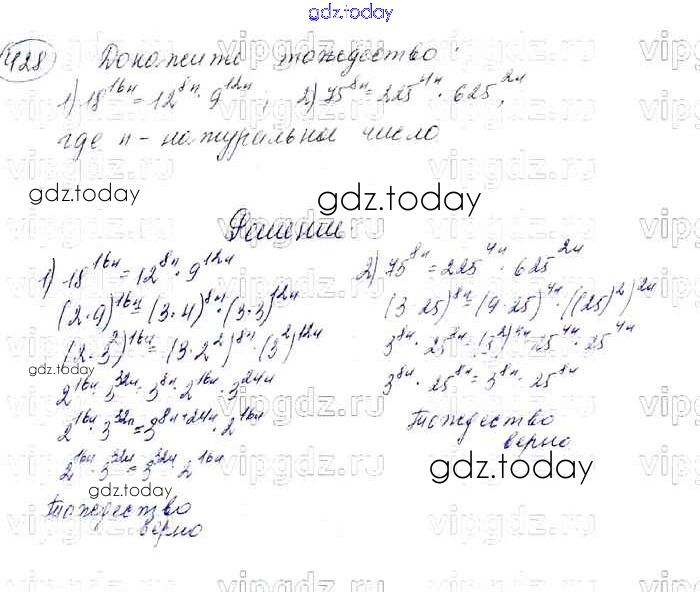 gdz.today
428 Докажите тождество:
1) 18^16n = 12^8n · 9^12n; 2) 75^8n = 225^4n · 625^2n,
где n - натуральное число
gdz.today
gdz.today
Решение
1) 18^16n = 12^8n · 9^12n
(2·9)^16n = (3·4)^8n · (3·3)^12n
(2·3^2)^16n = (3·2^2)^8n · (3^2)^12n
gdz.today
2^16n · 3^32n = 3^8n · 2^16n · 3^24n
2^16n · 3^32n = 3^8n+24n · 2^16n
2^16n · 3^32n = 3^32n · 2^16n
gdz.today
Тождество
верно
2) 75^8n = 225^4n · 625^2n
(3·25)^8n = (9·25)^4n · ((25)^2)^2n
3^8n · 25^8n = (3^2)^4n · 25^4n · 25^4n
3^8n · 25^8n = 3^8n · 25^8n
Тождество
верно
gdz.today
vipgdz.ru